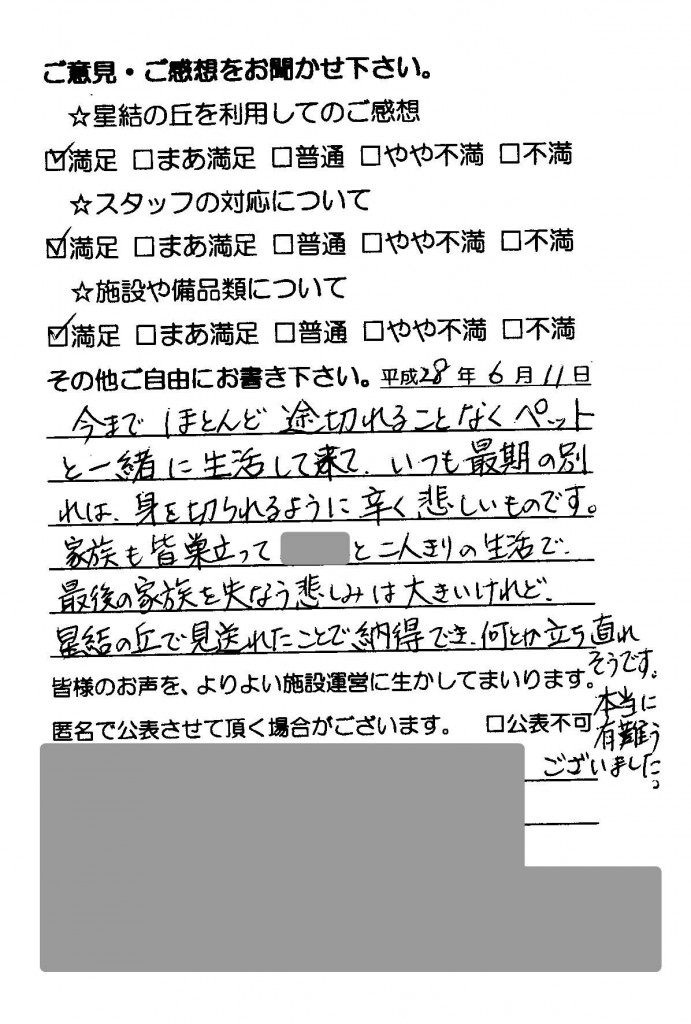 ご意見・ご感想をお聞かせ下さい。
☆星結の丘を利用してのご感想
☑満足 □まあ満足 □普通 □やや不満 □不満
☆スタッフの対応について
☑満足 □まあ満足 □普通 □やや不満 □不満
☆施設や備品類について
☑満足 □まあ満足 □普通 □やや不満 □不満
その他ご自由にお書き下さい。平成28年6月11日
今までほとんど途切れることなくペット
と一緒に生活して来て、いつも最期の別
れは、身を切られるように辛く悲しいものです。
家族も皆巣立って と二人きりの生活で、
最後の家族を失なう悲しみは大きいけれど、
星結の丘で見送れたことで納得でき、何とか立ち直れ
そうです。
皆様のお声を、よりよい施設運営に生かしてまいります。
本当に
匿名で公表させて頂く場合がございます。 □公表不可
有難う
ございました。